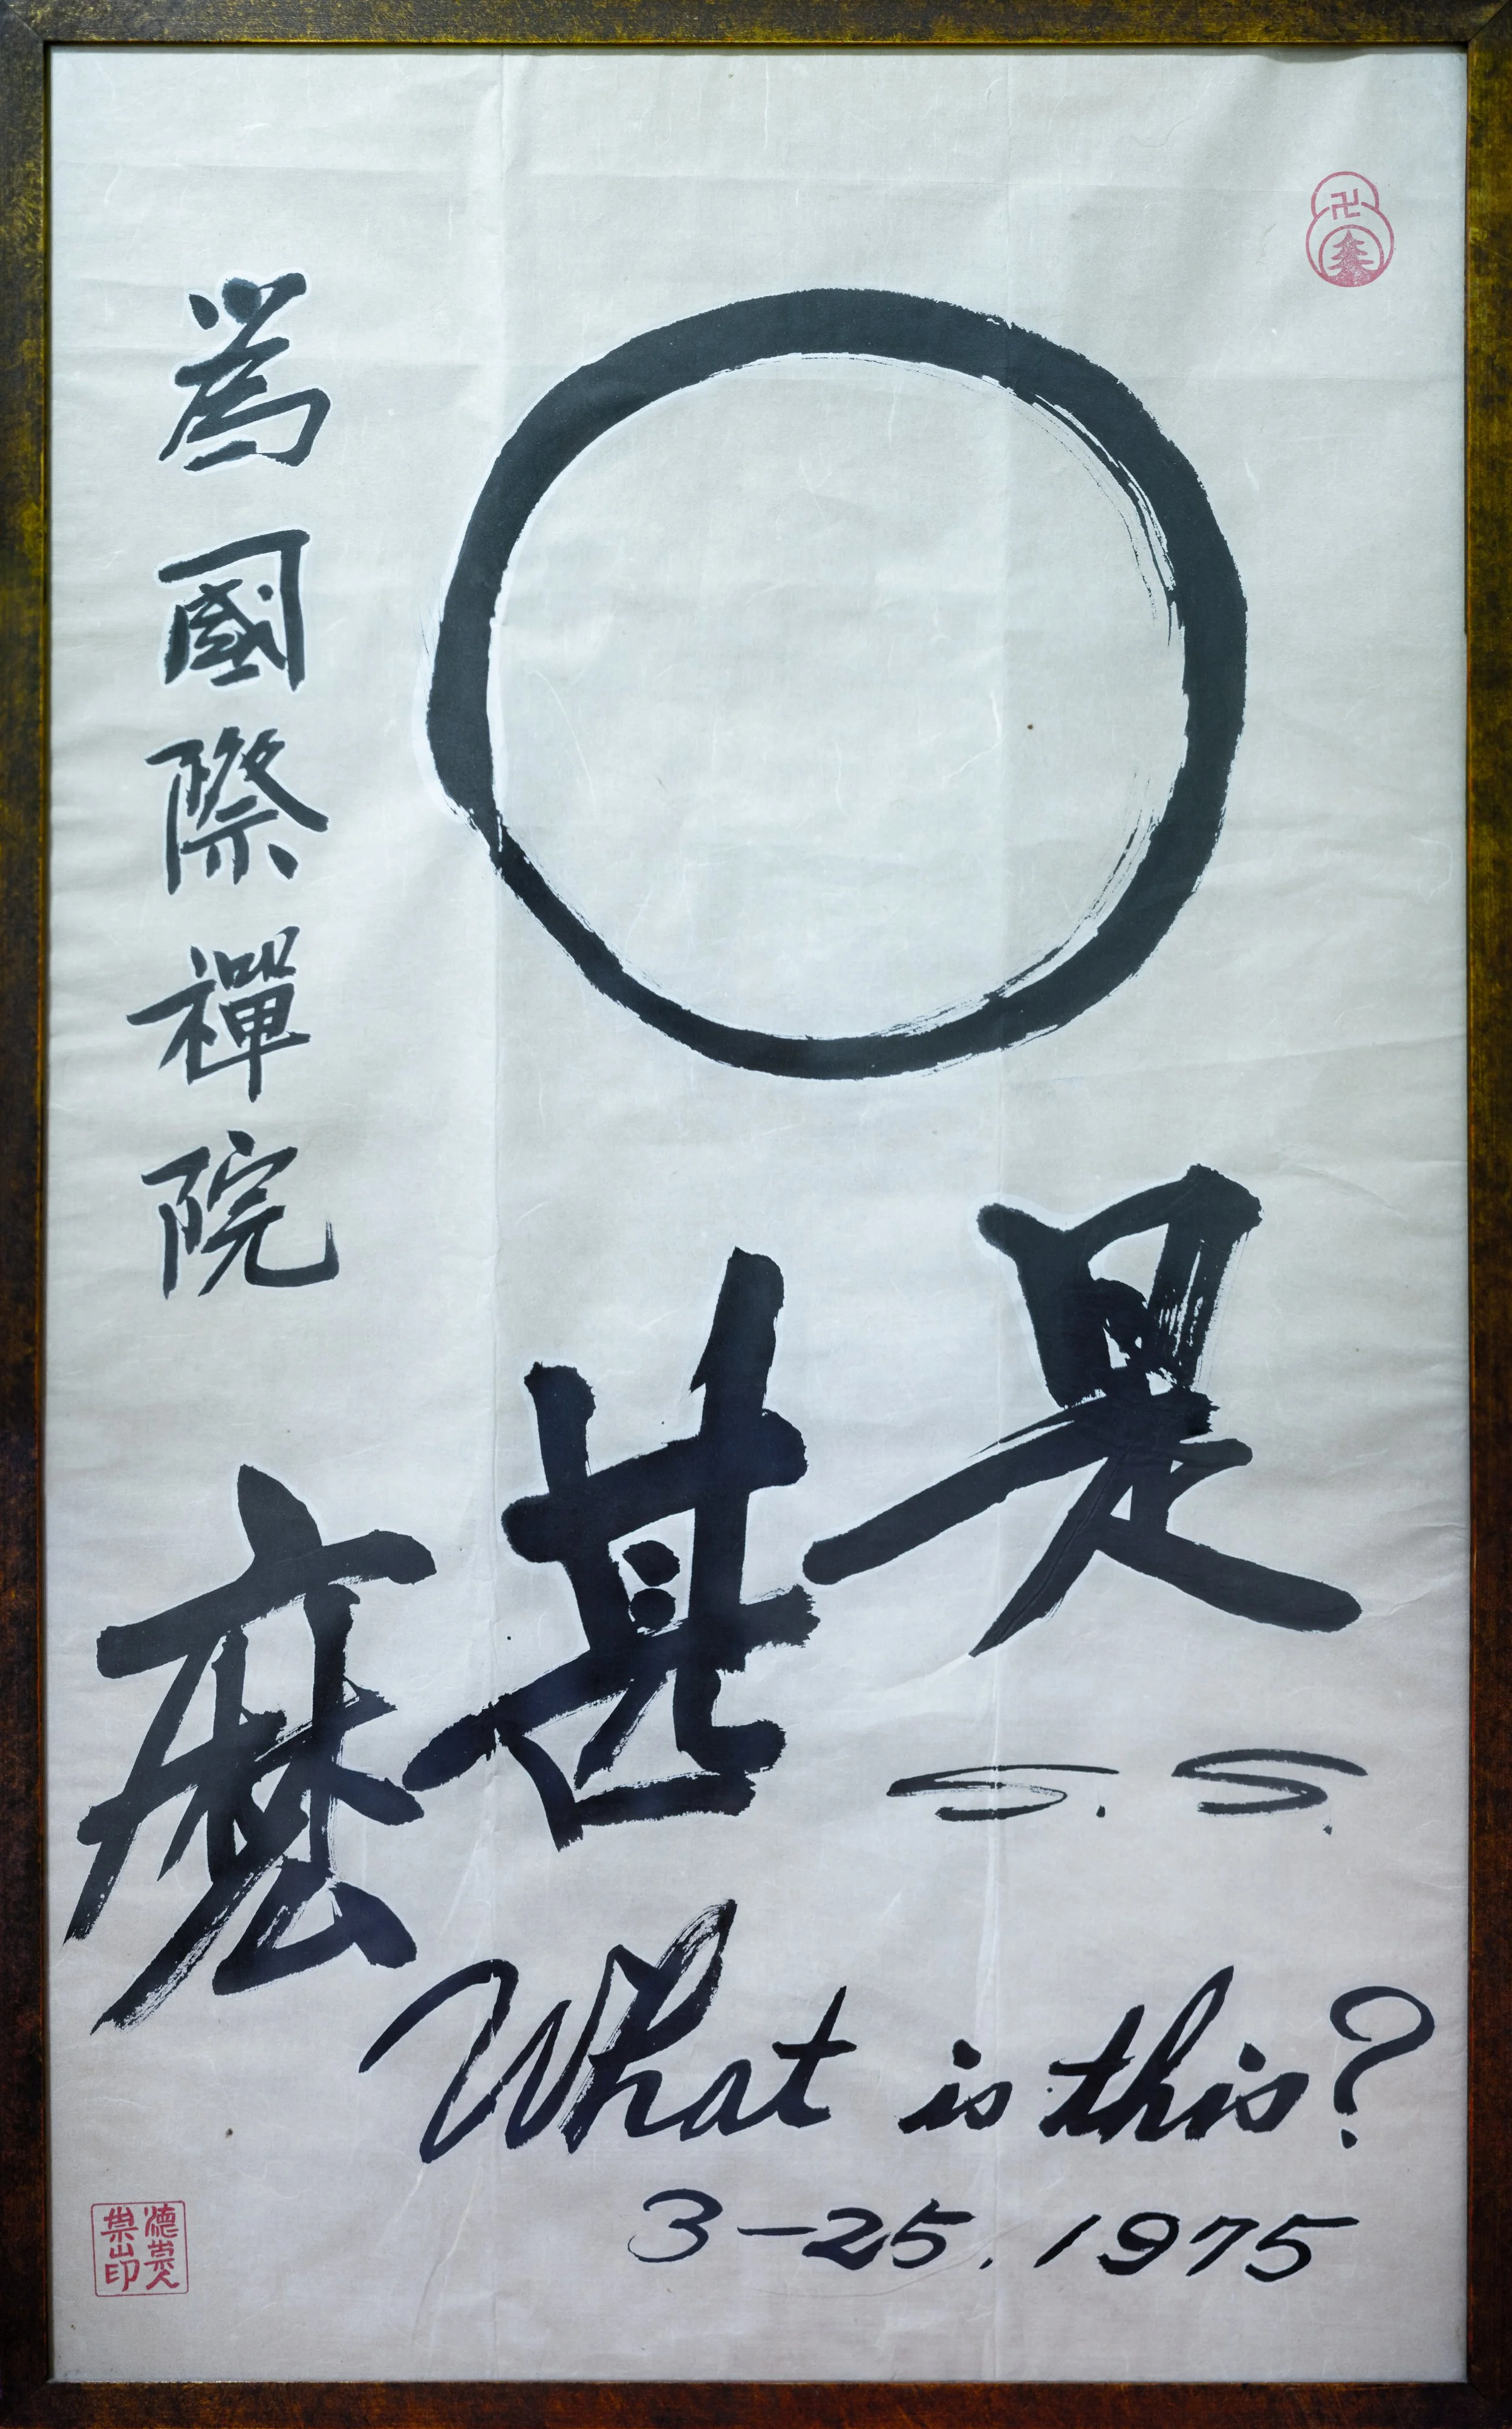 是甚麼
爲國際禪院
S. S.
What is this?
3-25. 1975
卍
德崇人
崇山印